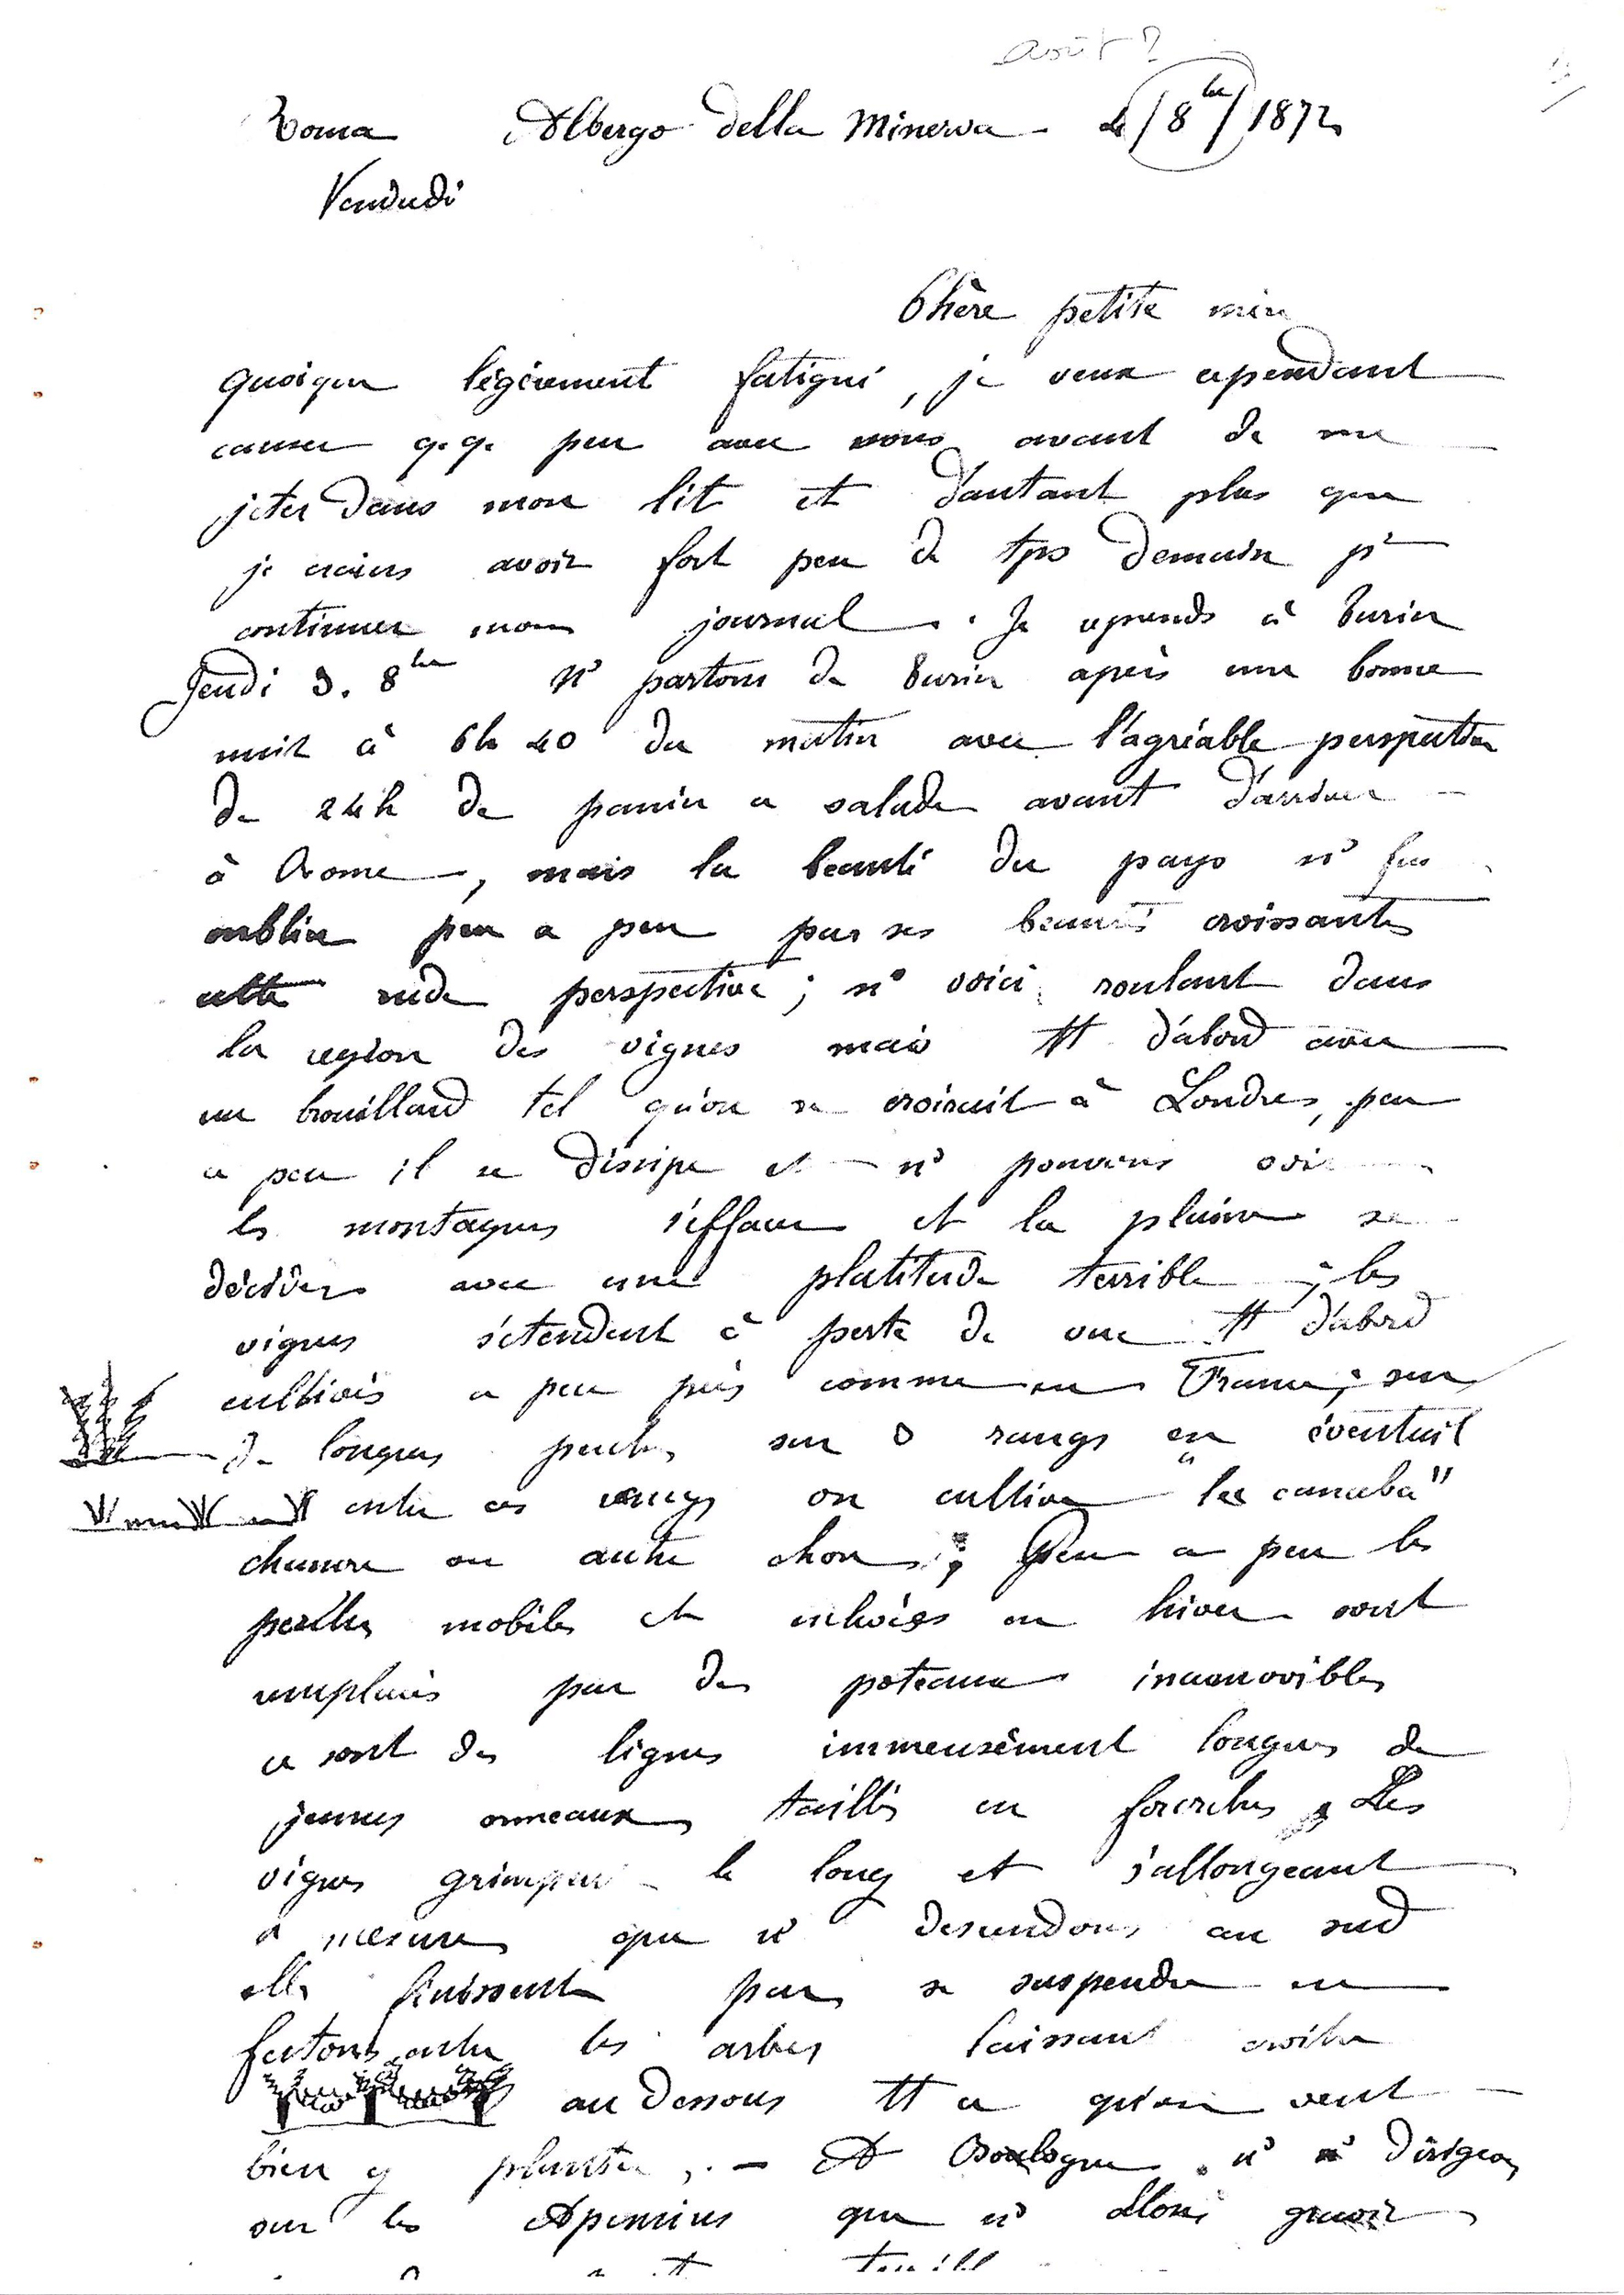 août ?
Roma Albergo della Minerva - le 8bre 1872
Vendredi
Chère petite mère
quoique légèrement fatigué, je veux cependant
causer q.q. peu avec vous avant de me
jeter dans mon lit et d'autant plus que
je crains avoir fort peu de tps demain pr
continuer mon journal. Je reprends à Turin
Jeudi 3. 8bre ns partons de Turin après une bonne
nuit à 6h 40 du matin avec l'agréable perspective
de 24h de panier a salade avant d'arriver
à Rome, mais la beauté du pays ns fait
oublier peu a peu par ses beautés croissantes
cette rude perspective ; ns voici roulant dans
la région des vignes mais tt d'abord avec
un brouillard tel qu'on se croirait à Londres, peu
a peu il se dissipe et ns pouvons voir
les montagnes s'effacer et la plaine se
dérouler avec une platitude terrible ; les
vignes s'étendent à perte de vue tt d'abord
cultivées a peu près comme en France, sur
de longues perches sur 3 rangs en éventail
entre ces rangs on cultive "la canaba"
chanvre ou autre chose ; Peu a peu les
perches mobiles et enlevées en hiver sont
remplacées par des poteaux inamovibles
ce sont des lignes immensément longues de
jeunes ormeaux taillés en fourches, Les
vignes grimpent le long et s'allongeant
à mesure que ns descendons au sud
elles finissent par se suspendre en
festons entre les arbres laissant croître
au dessous tt ce qu'on veut
bien y planter. - A Boulogne ns ns dirigeons
sur les Apennins que ns allons gravir